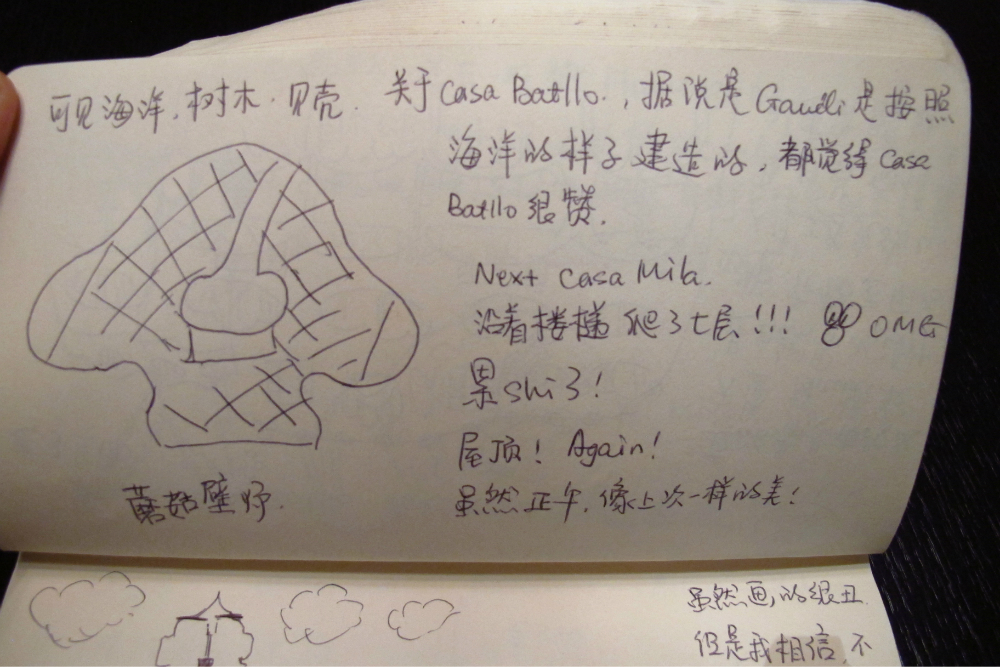 可见海洋，树木·贝壳．
关于Casa Batllo.，据说是Gaudi是按照
海洋的样子建造的，都觉得Casa
Batllo很赞．
Next Casa Mila.
沿着楼梯爬了七层!!! OMG
累shi了!
屋顶! Again!
虽然正午，像上次一样的美!
蘑菇壁炉．
虽然画的很丑
但是我相信，不